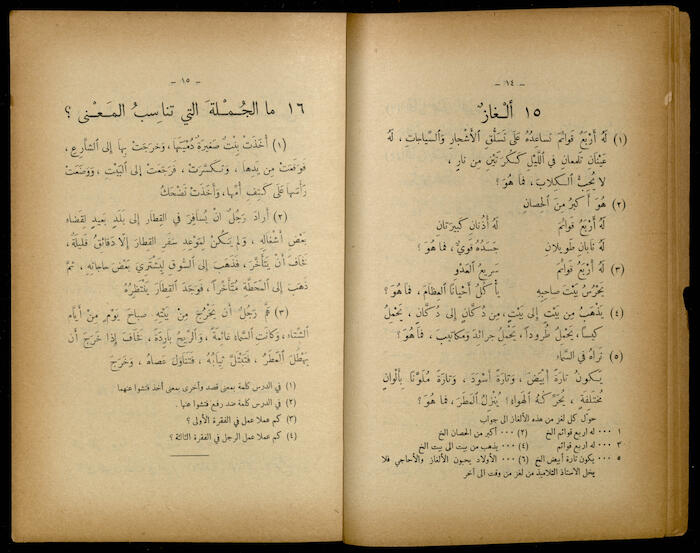 - ١٤ -
١٥ ألْغازٌ
(١) لَهُ أَرْبَعُ قَوائِمَ تُساعِدُهُ عَلى تَسَلُّقِ الأَشْجارِ وَالسِّياجاتِ ، لَهُ
عَيْنانِ تَلْمَعانِ في اللَّيْلِ كَكُرَتَيْنِ مِنْ نارٍ ،
لا يُحِبُّ الكِلابَ ، فما هُوَ ؟
(٢) هُوَ أَكْبَرُ مِنَ الحِصانِ
لَهُ أَرْبَعُ قَوائِمَ لَهُ أُذُنانِ كَبيرَتانِ
لَهُ نابانِ طَويلانِ جَسَدُهُ قَوِيٌّ ، فما هُوَ ؟
(٣) لَهُ أَرْبَعُ قَوائِمَ سَريعُ العَدْوِ
يَحْرُسُ بَيْتَ صاحِبِهِ يأْكُلُ أَحْياناً العِظامَ ، فما هُوَ ؟
(٤) يَذْهَبُ مِنْ بَيْتٍ إِلى بَيْتٍ ، مِنْ دُكّانٍ إِلى دُكّانٍ ، يَحْمِلُ
كيساً ، يَحْمِلُ طُروداً ، يَحْمِلُ جَرائِدَ وَمَكاتيبَ ، فما هُوَ ؟
(٥) نَراهُ في السَّماءِ
يَكونُ تارَةً أَبْيَضَ ، وَتارَةً أَسْوَدَ ، وَتارَةً مُلَوَّناً بِأَلْوانٍ
مُخْتَلِفَةٍ ، يُحَرِّكُهُ الهَواءُ ! يُنْزِلُ المَطَرَ ، فما هُوَ ؟
حوّل كل لغز من هذه الألغاز الى جواب
١ ٠٠٠ له اربع قوائم الخ (٢) ٠٠٠ أكبر من الحصان الخ
٣ ٠٠٠ له اربع قوائم (٤) ٠٠٠ يذهب من بيت الى بيت الخ
٥ ٠٠٠ يكون تارة أبيض الخ (٦) ٠٠٠ الأولاد يحبون الألغاز والأحاجي فلا
يبخل الاستاذ التلاميذ من لغز من وقت الى آخر
- ١٥ -
١٦ ما الجُمْلَةُ التي تناسِبُ المَعْنى ؟
(١) أَخَذَتْ بِنْتٌ صَغيرَةٌ دُمْيَتَها ، وَخَرَجَتْ بِها إِلى الشّارِعِ ،
فَوَقَعَتْ مِنْ يَدِها ، وَتَكَسَّرَتْ ، فَرَجَعَتْ إِلى البَيْتِ ، وَوَضَعَتْ
رَأْسَها عَلى كَتِفِ أُمِّها ، وَأَخَذَتْ تَضْحَكُ
(٢) أَرادَ رَجُلٌ انْ يُسافِرَ في القِطارِ إِلى بَلَدٍ بَعيدٍ لِقَضاءِ
بَعْضِ أَشْغالِهِ ، وَلم يَكُنْ لِمَوْعِدِ سَفَرِ القِطارِ إِلّا دَقائِقُ قَليلَةٌ ،
فَخافَ أَنْ يَتَأَخَّرَ ، فَذَهَبَ إِلى السّوقِ لِيَشْتَرِيَ بَعْضَ حاجاتِهِ ، ثمَّ
ذَهَبَ إِلى المَحَطَّةِ مُتَأَخِّراً ، فَوَجَدَ القِطارَ يَنْتَظِرُهُ
(٣) هَمَّ رَجُلٌ أَنْ يَخْرُجَ مِنْ بَيْتِهِ صَباحَ يَوْمٍ مِنْ أَيّامِ
الشِّتاءِ ، وَكانَتِ السَّماءُ غائِمَةً ، وَالرّيحُ بارِدَةً ، فَخافَ إِذا خَرَجَ أَنْ
يَهْطِلَ المَطَرُ ، فَتَبْتَلَّ ثِيابُهُ ، فَتَناوَلَ عَصاهُ ، وَخَرَجَ
(١) في الدرس كلمة بمعنى قصد وأخرى بمعنى أخذ فتشوا عنهما
(٢) في الدرس كلمة ضد رفع فتشوا عنها .
(٣) كم عملا عمل في الفقرة الأولى ؟
(٤) كم عملا عمل الرجل في الفقرة الثالثة ؟